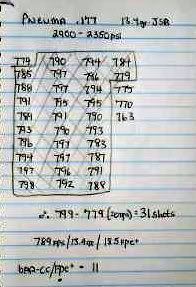 PNEUMA .177 13.4gr JSB
2900 - 2350psi
779 790 794 784
785 797 796 779
788 797 794 775
791 795 795 770
789 791 790 763
793 790 793
796 797 793
794 797 787
797 796 791
798 792 788
∴ 799 - 779 (20fps) = 31 shots
789fps / 13.4gr / 18.5fpe
bar-cc/fpe = 11